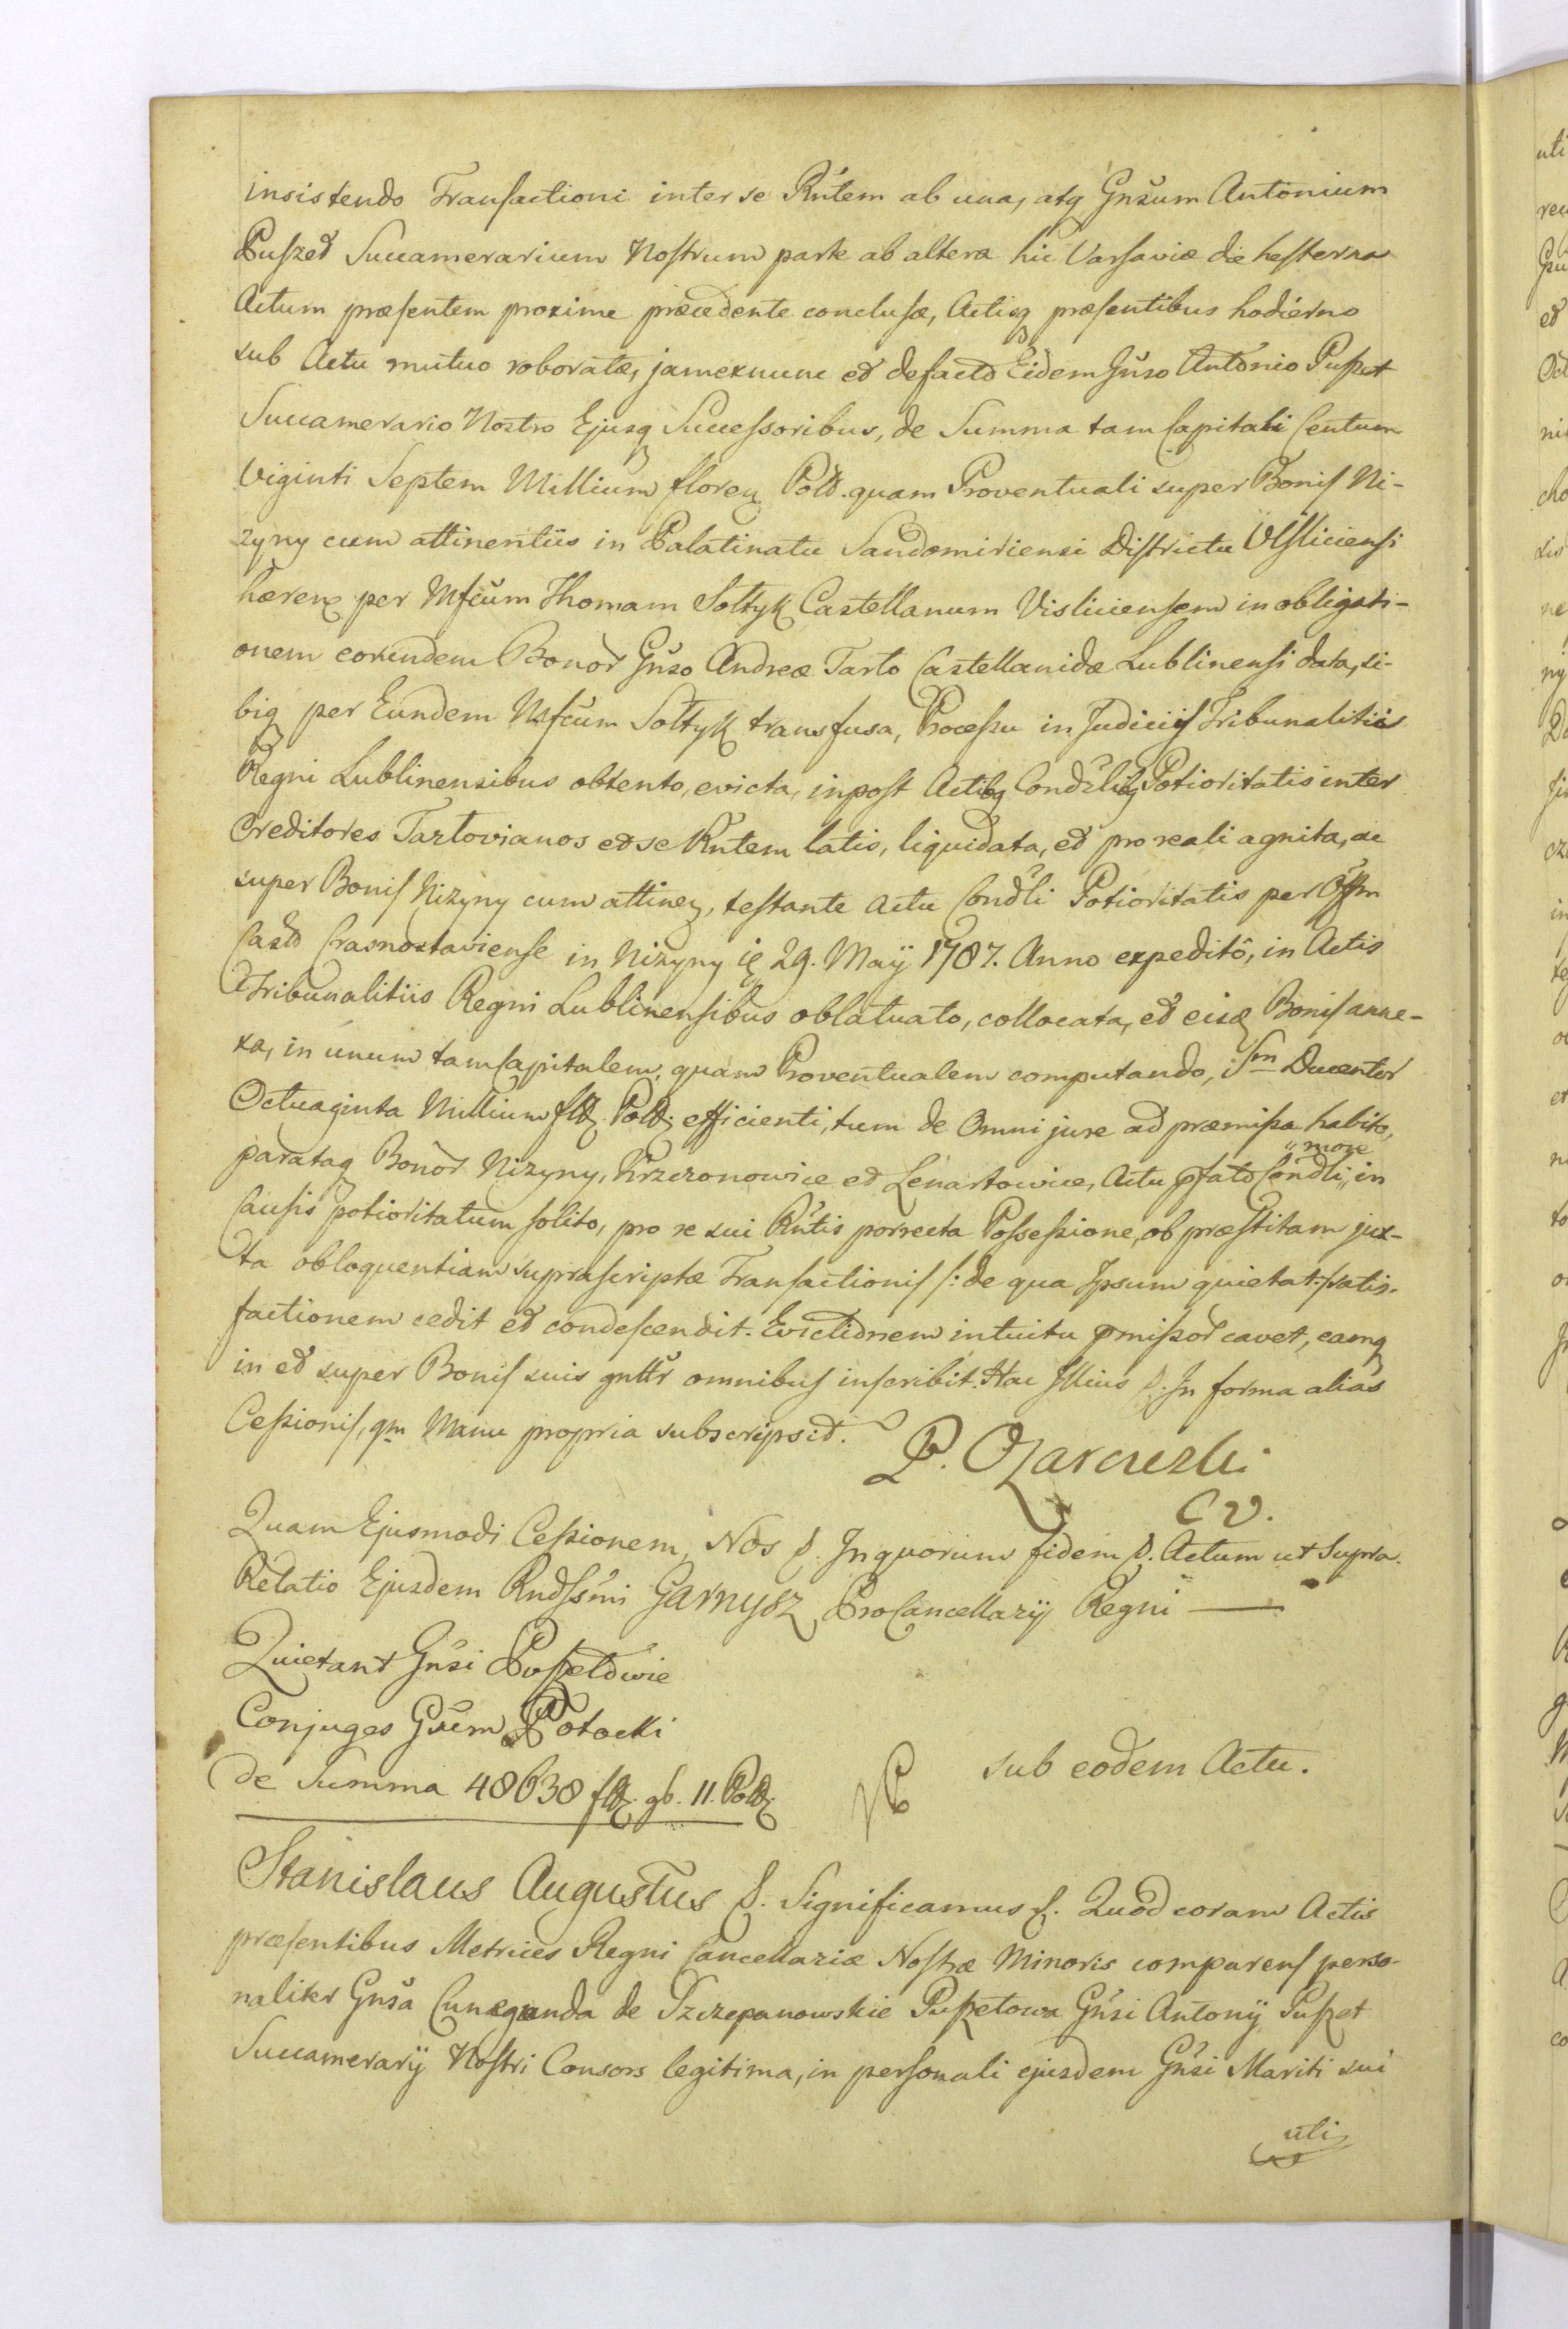 insistendo Transactioni inter se Rńtem ab una, atq Gnsum Antonium
Puszet Succamerarium Nostrum parte ab altera hic Varsaviæ die hesterna
Actum præsentem proxime præcedente conclusæ, Actisq præsentibus hodierno
sub Actu mutuo roboratæ, jamexnunc et defacto Eidem Gnso Antonio Puszet
Succamerario Nostro Ejusq Successoribus, de Summa tam Capitali Centum
Viginti Septem Millium floren Pold. quam Proventuali super Bonis Ni-
zyny cum attinentiis in Palatinatu Sandomiriensi Districtu Visliciensi
hæren per Mfcum Thomam Sołtyk Castellanum Visliciensem in obligati-
onem eorundem Bonor Gnso Andreæ Tarło Castellanidæ Lublinensi data, si-
biq per Eundem Mfcum Sołtyk transfusa, Processu in Judiciis Tribunalitiis
Regni Lublinensibus obtento, evicta, inpost Actibq Condżlibq Potioritatis inter
Creditores Tarłovianos et se Rntem latis, liquidata, et pro reali agnita, ac
super Bonis Nizyny cum attinen, testante Actu Condli Potioritatis per Offm
Castr Crasnostaviense in Nizyny 29. Maÿ 1787. Anno expedito, in Actis
Tribunalitiis Regni Lublinensibus oblatuato, collocata, et eisd Bonis anne-
xa, in unum tam Capitalem, quam Proventualem computando, Sm Ducentor
Octuaginta Millium fld Pold efficienti, tum de Omni jure ad præmissa habito,
parataq Bonor Nizyny, Krzczonowice et Lenartowice, Actu pfato Condli, in
"more
Causis potioritatum solito, pro re sui Rntis porrecta Possessione, ob præstitam jux-
ta obloquentiam suprascriptæ Transactionis /: de qua Ipsum quietat :/ satis-
factionem cedit et condescendit. Evictionem intuitu pmissor cavet, eamq
in et super Bonis suis gnttr omnibus inscribit. Hac Illius &. In forma alias
Cessionis, qm Manu propria subscripsit.
P. Ożarowski
CV.
Quam Ejusmodi Cessionem, Nos &. In quorum fidem &. Actum ut Supra.
Relatio Ejusdem Rndssmi Garnysz ProCancellarij Regni —
Quietant Gnsi Puszetowie
Conjuges Gsum Potocki
de Summa 48638 fld. gb. 11. Pold
sub eodem Actu.
Stanislaus Augustus &. Significamus &. Quod coram Actis
præsentibus Metrices Regni Cancellariæ Nostræ Minoris comparens perso-
naliter Gnsa Cunegunda de Szczepanowskie Puszetowa Gnsi Antonij Puszet
Succamerarij Nostri Consors legitima, in personali ejusdem Gnsi Mariti sui
uti